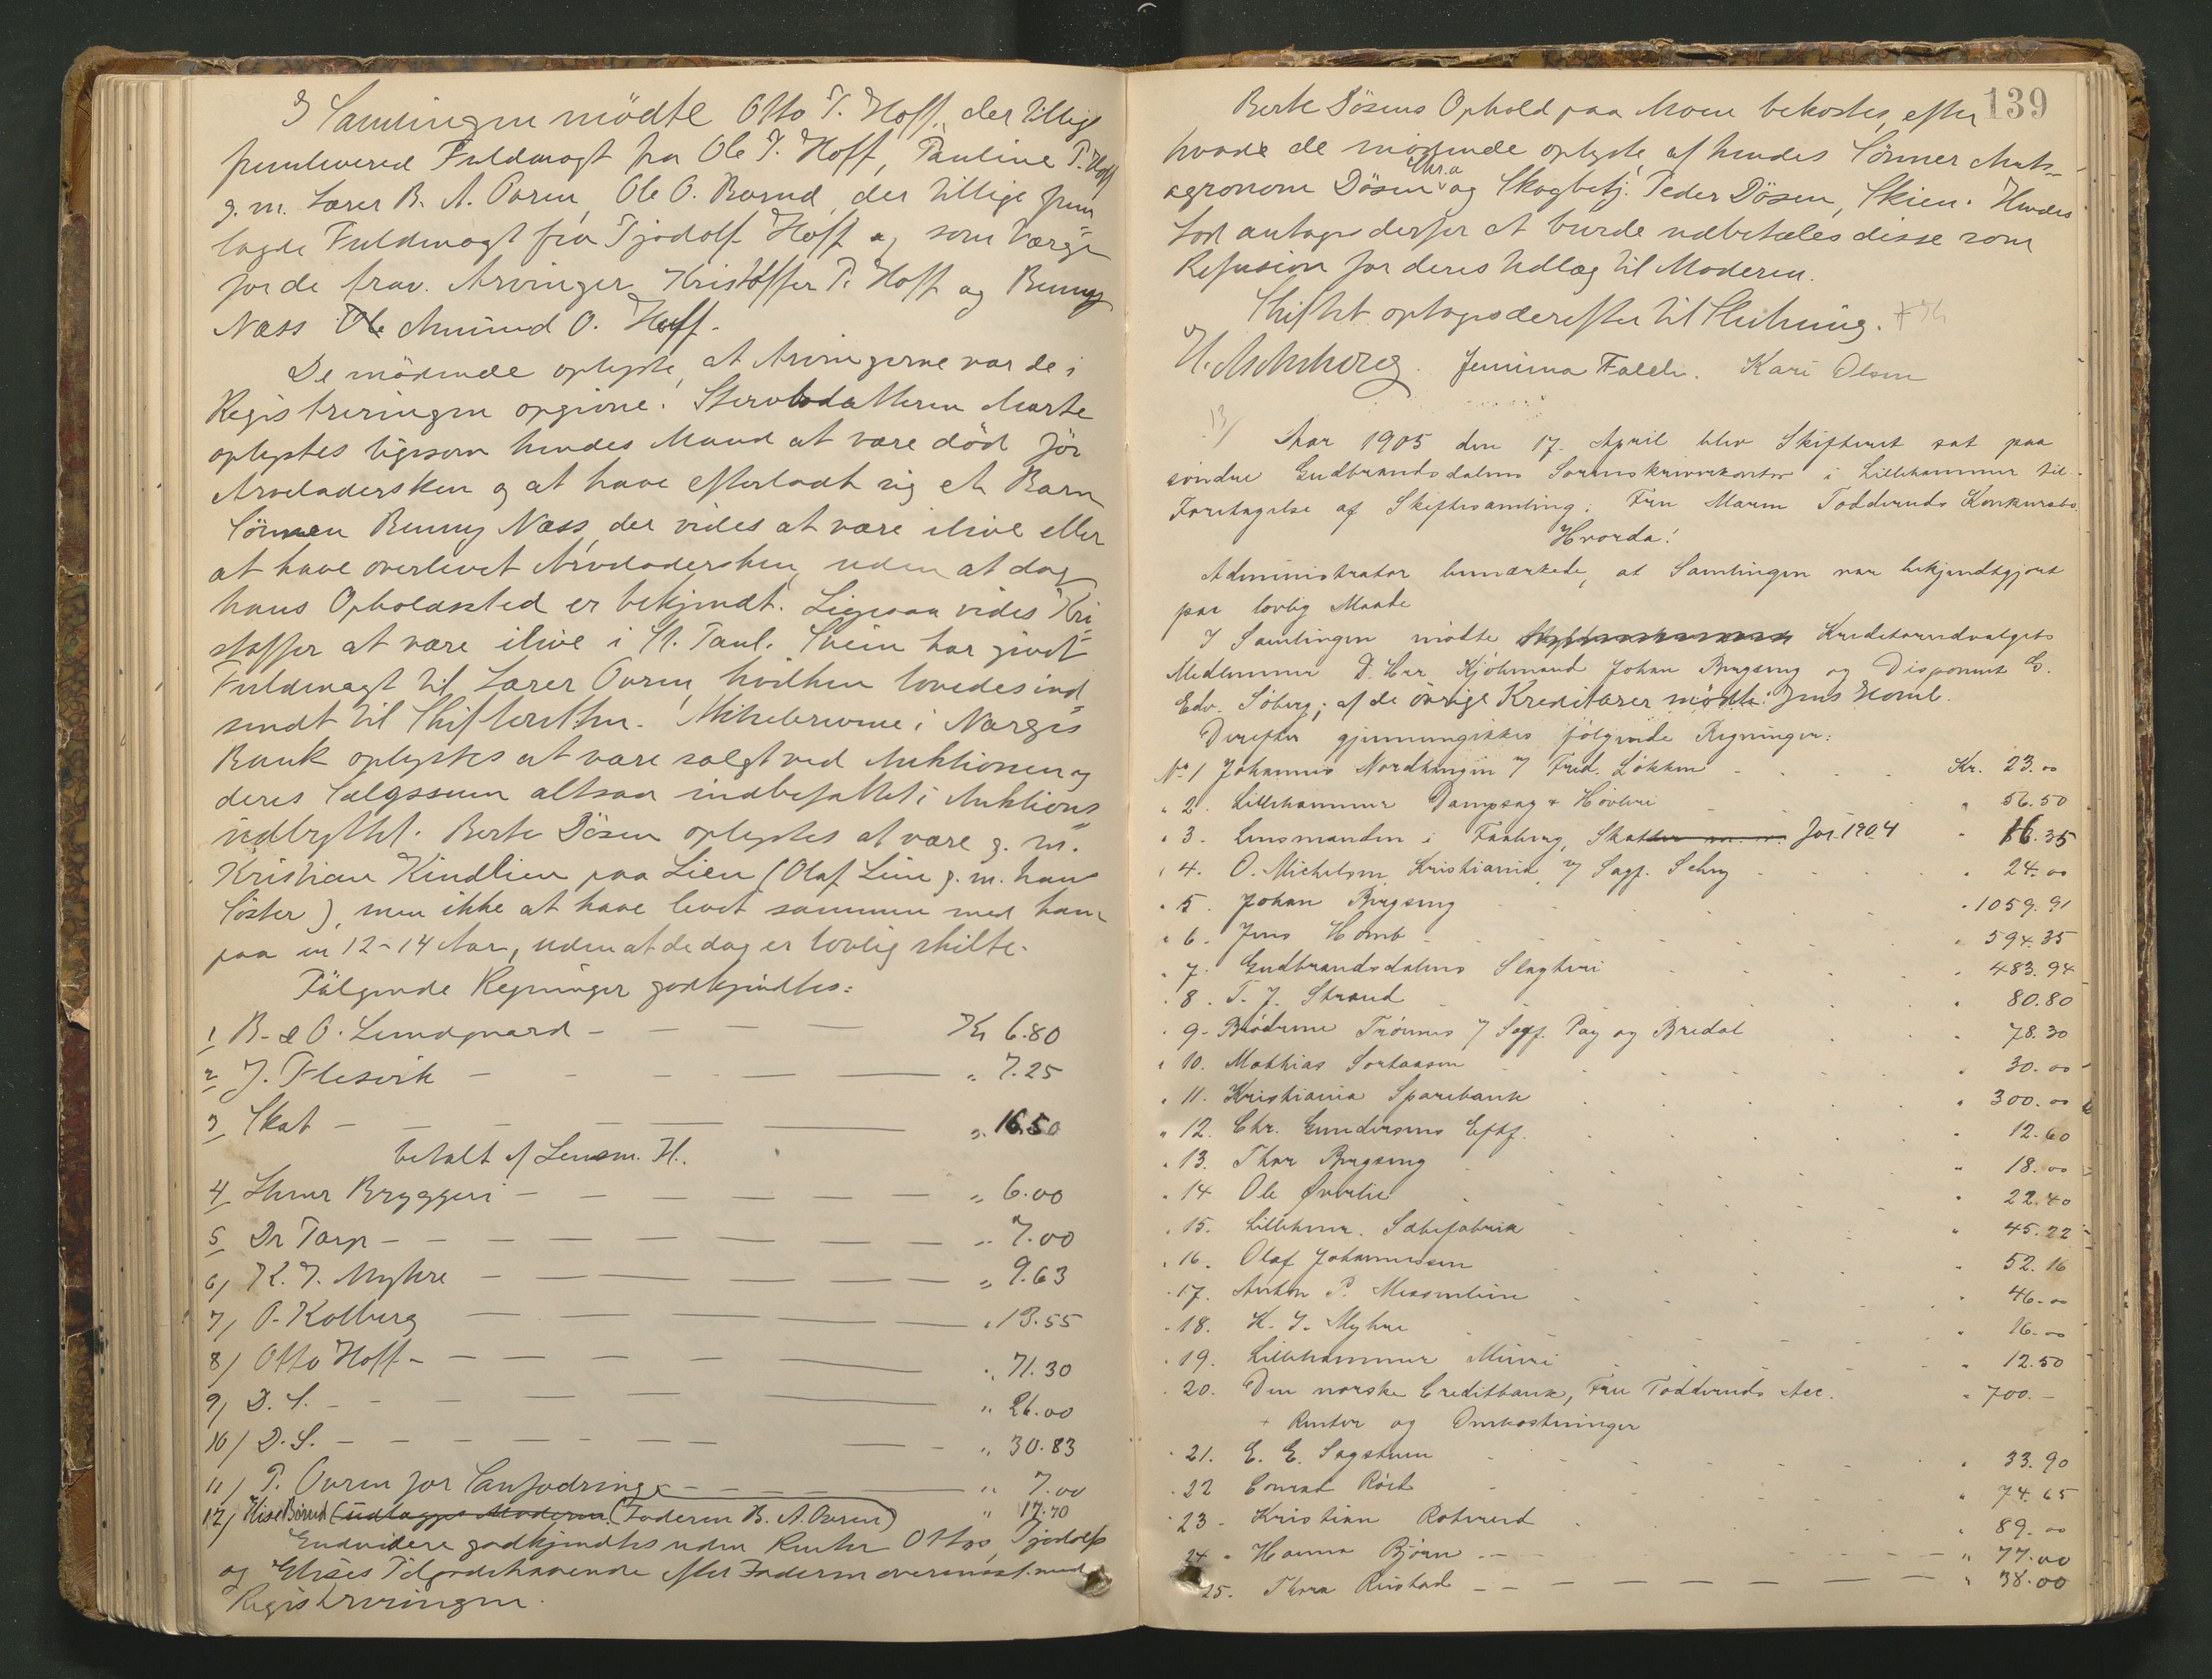 I Samlingen mödte Otto T. Hoff, der tillige
fremlevered Fuldmagt fra Ole T. Hoff, Pauline T. Hoff
g. m. Lærer B. A. Ouren, Ole O. Borud, der tillige frem
lagde Fuldmagt fra Tjodolf Hoff og som Værge
for de frav. Arvinger Kristoffer T. Hoff og Benny
Næss Ole Amund O. Hoff.
De mödende oplyste, at Arvingerne var de i
Registreringen opgivne. Stervbodatteren Marte
oplystes ligesom hendes Mand at være död för
Arveladersken og at have efterladt sig et Barn
Sönnen Benny Næss, der vides at være ilive eller
at have overlevet Arveladersken, uden at dog
hans Opholdssted er bekjendt. Ligesaa vides Kri
stoffer at være ilive i St. Paul. Svein har givet
Fuldmagt til Lærer Ouren, hvilken lovedes ind
sendt til Skifteretten. i Norges
Bank oplystes at være solgt ved Auktionen og
deres Salgssum altsaa indbefattet i Auktions
udbyttet. Berte Dösen oplystes at være g. m.
Kristian Kindlien paa Lien (Olaf Lien g. m. hans
Söster), men ikke at have levet sammen med ham
paa en 12-14 Aar, uden at de dog er lovlig skilte.
Fölgende Regninger godkjendtes:
1 B. & O. Lundgaard - Kr 6.80
2 J. Flesvik - " 7.25
3 Skat - " 16.50
betalt af Lensm. H.
4 Lhmr Bryggeri - " 6.00
5 Dr Tarp - " 7.00
6/ K. J. Myhre - " 9.63
7/ O. Kolberg - " 13.55
8/ Otto Hoff - " 71.30
9/ D. S. - " 26.00
10/ D. S. - " 30.83
11/ P. Ouren for Saufodring - " 7.00
12/ Elise Borud (udlagges Moderen (Foderen B. A. Ouren) " 17.70
Endvidere godkjendtes uden Renter Ottos, Tjodolfs
og Elises Tilgodehavende efter Faderen overensst. med
Registreringen.
139
Berte Dösens Ophold paa Moen bekostes, efter
hvad de mödende oplyste, af hendes Sönner Amts-
agronom Dösen Chr.a og Skogbetj. Peder Dösen, Skien. Hendes
Lod antages derfor at burde udbetales disse som
Refusion for deres Udlæg til Moderen.
Skiftet optoges derefter til Slutning.
Jemima Falch. Kari Olsen
13/ Aar 1905 den 17. April blev Skifteret sat paa
söndre Gudbrandsdalens Sorenskriverkontor i Lillehammer til
Foretagelse af Skiftesamling: Fru Maren Todderuds Konkursbo.
Hvorda!
Administrator bemærkede, at Samlingen var bekjendtgjort
paa lovlig Maade
I Samlingen mödte Kreditorudvalgets
Medlemmer D'Hrr Kjöbmand Johan Brysæng og Disponent G.
Edv. Söberg; af de övrige Kreditorer mödte: Jens Homb.
Derefter gjennemgikkes fölgende Regninger:
No 1 Johannes Nordhengen v/ Fred. Lökken - Kr. 23.00
" 2. Lillehammer Dampsag & Hövleri " 56.50
" 3. Lensmanden i Faaberg, Skatter m. v. for 1904 " 16.35
" 4. O. Michelsen Kristiania v/ Sagf. Schey " 24.00
" 5. Johan Brysæng " 1059.91
" 6. Jens Homb " 594.35
" 7. Gudbrandsdalens Slagteri " 483.94
" 8. T. J. Strand " 80.80
" 9. Brödrene Trönnes v/ Sagf. Pay og Bredal " 78.30
" 10. Mathias Sortaasen " 30.00
" 11. Kristiania Sparebank " 300.00
" 12. Chr. Gundersens Eftf. " 12.60
" 13. Thor Brysæng " 18.00
" 14 Ole Överlie " 22.40
" 15. Lillehmr. Sæbefabrik " 45.22
" 16. Olaf Johannessen " 52.16
" 17. Anton P. Messenlien " 46.00
" 18. K. J. Myhre " 16.00
" 19. Lillehammer Mineri " 12.50
" 20. Den norske Creditbank, Fru Toddruds Acc. " 700.-
+ Renter og Omkostninger
" 21. E. E. Sagstuen " 33.90
" 22 Conrad Röist " 74.65
" 23 - Kristian Roterud " 89.00
24 " Hanna Björn - " 77.00
25. Thora Rustad - " 38.00